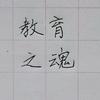 教育
之魂